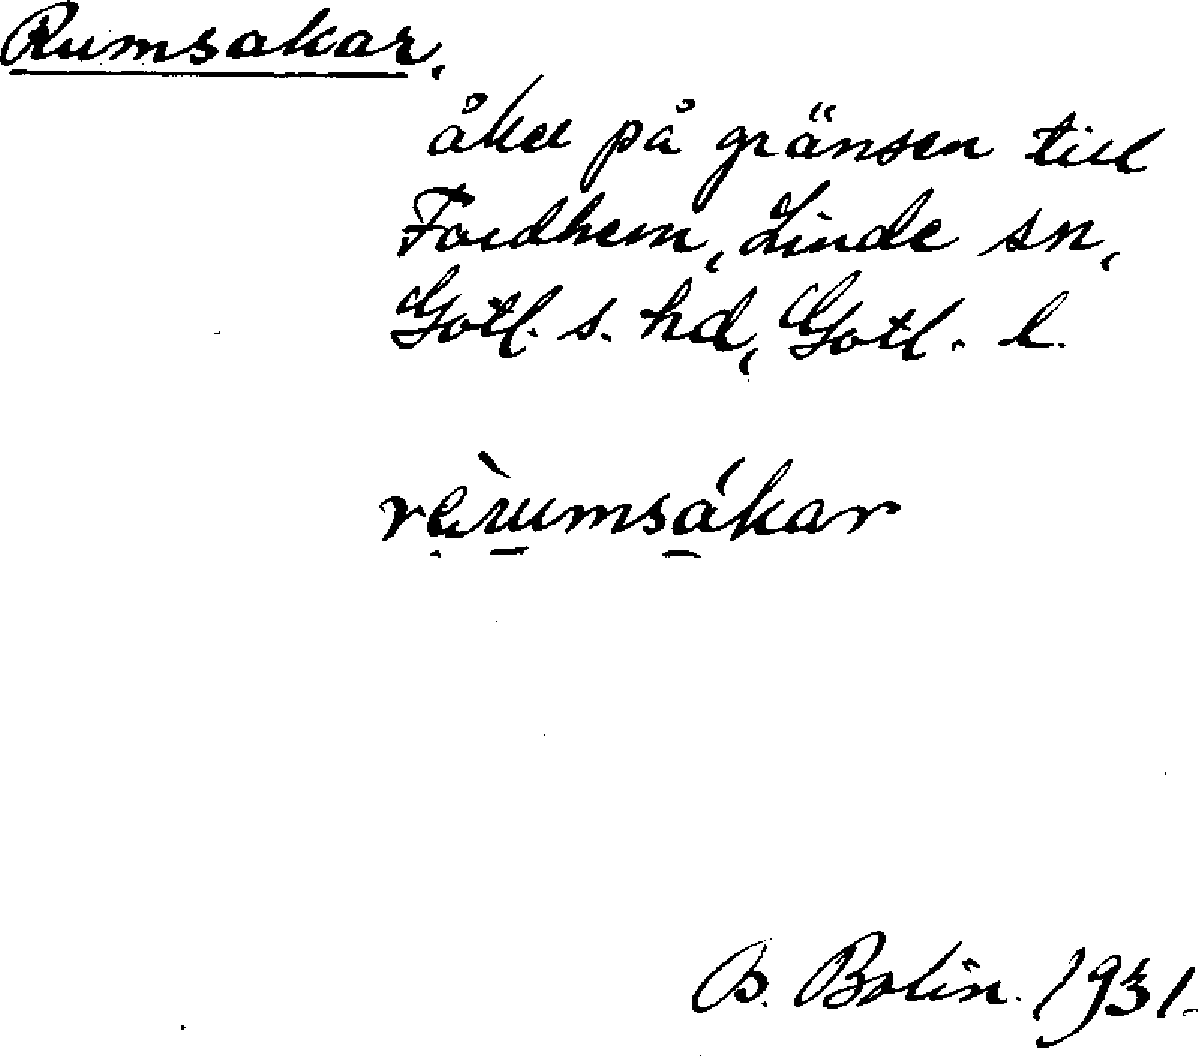 Rumsakar,
åker på gränsen till
Fardhem, Linde sn,
Gotl. s. hd, Gotl. l.
B. Bolin. 1931.